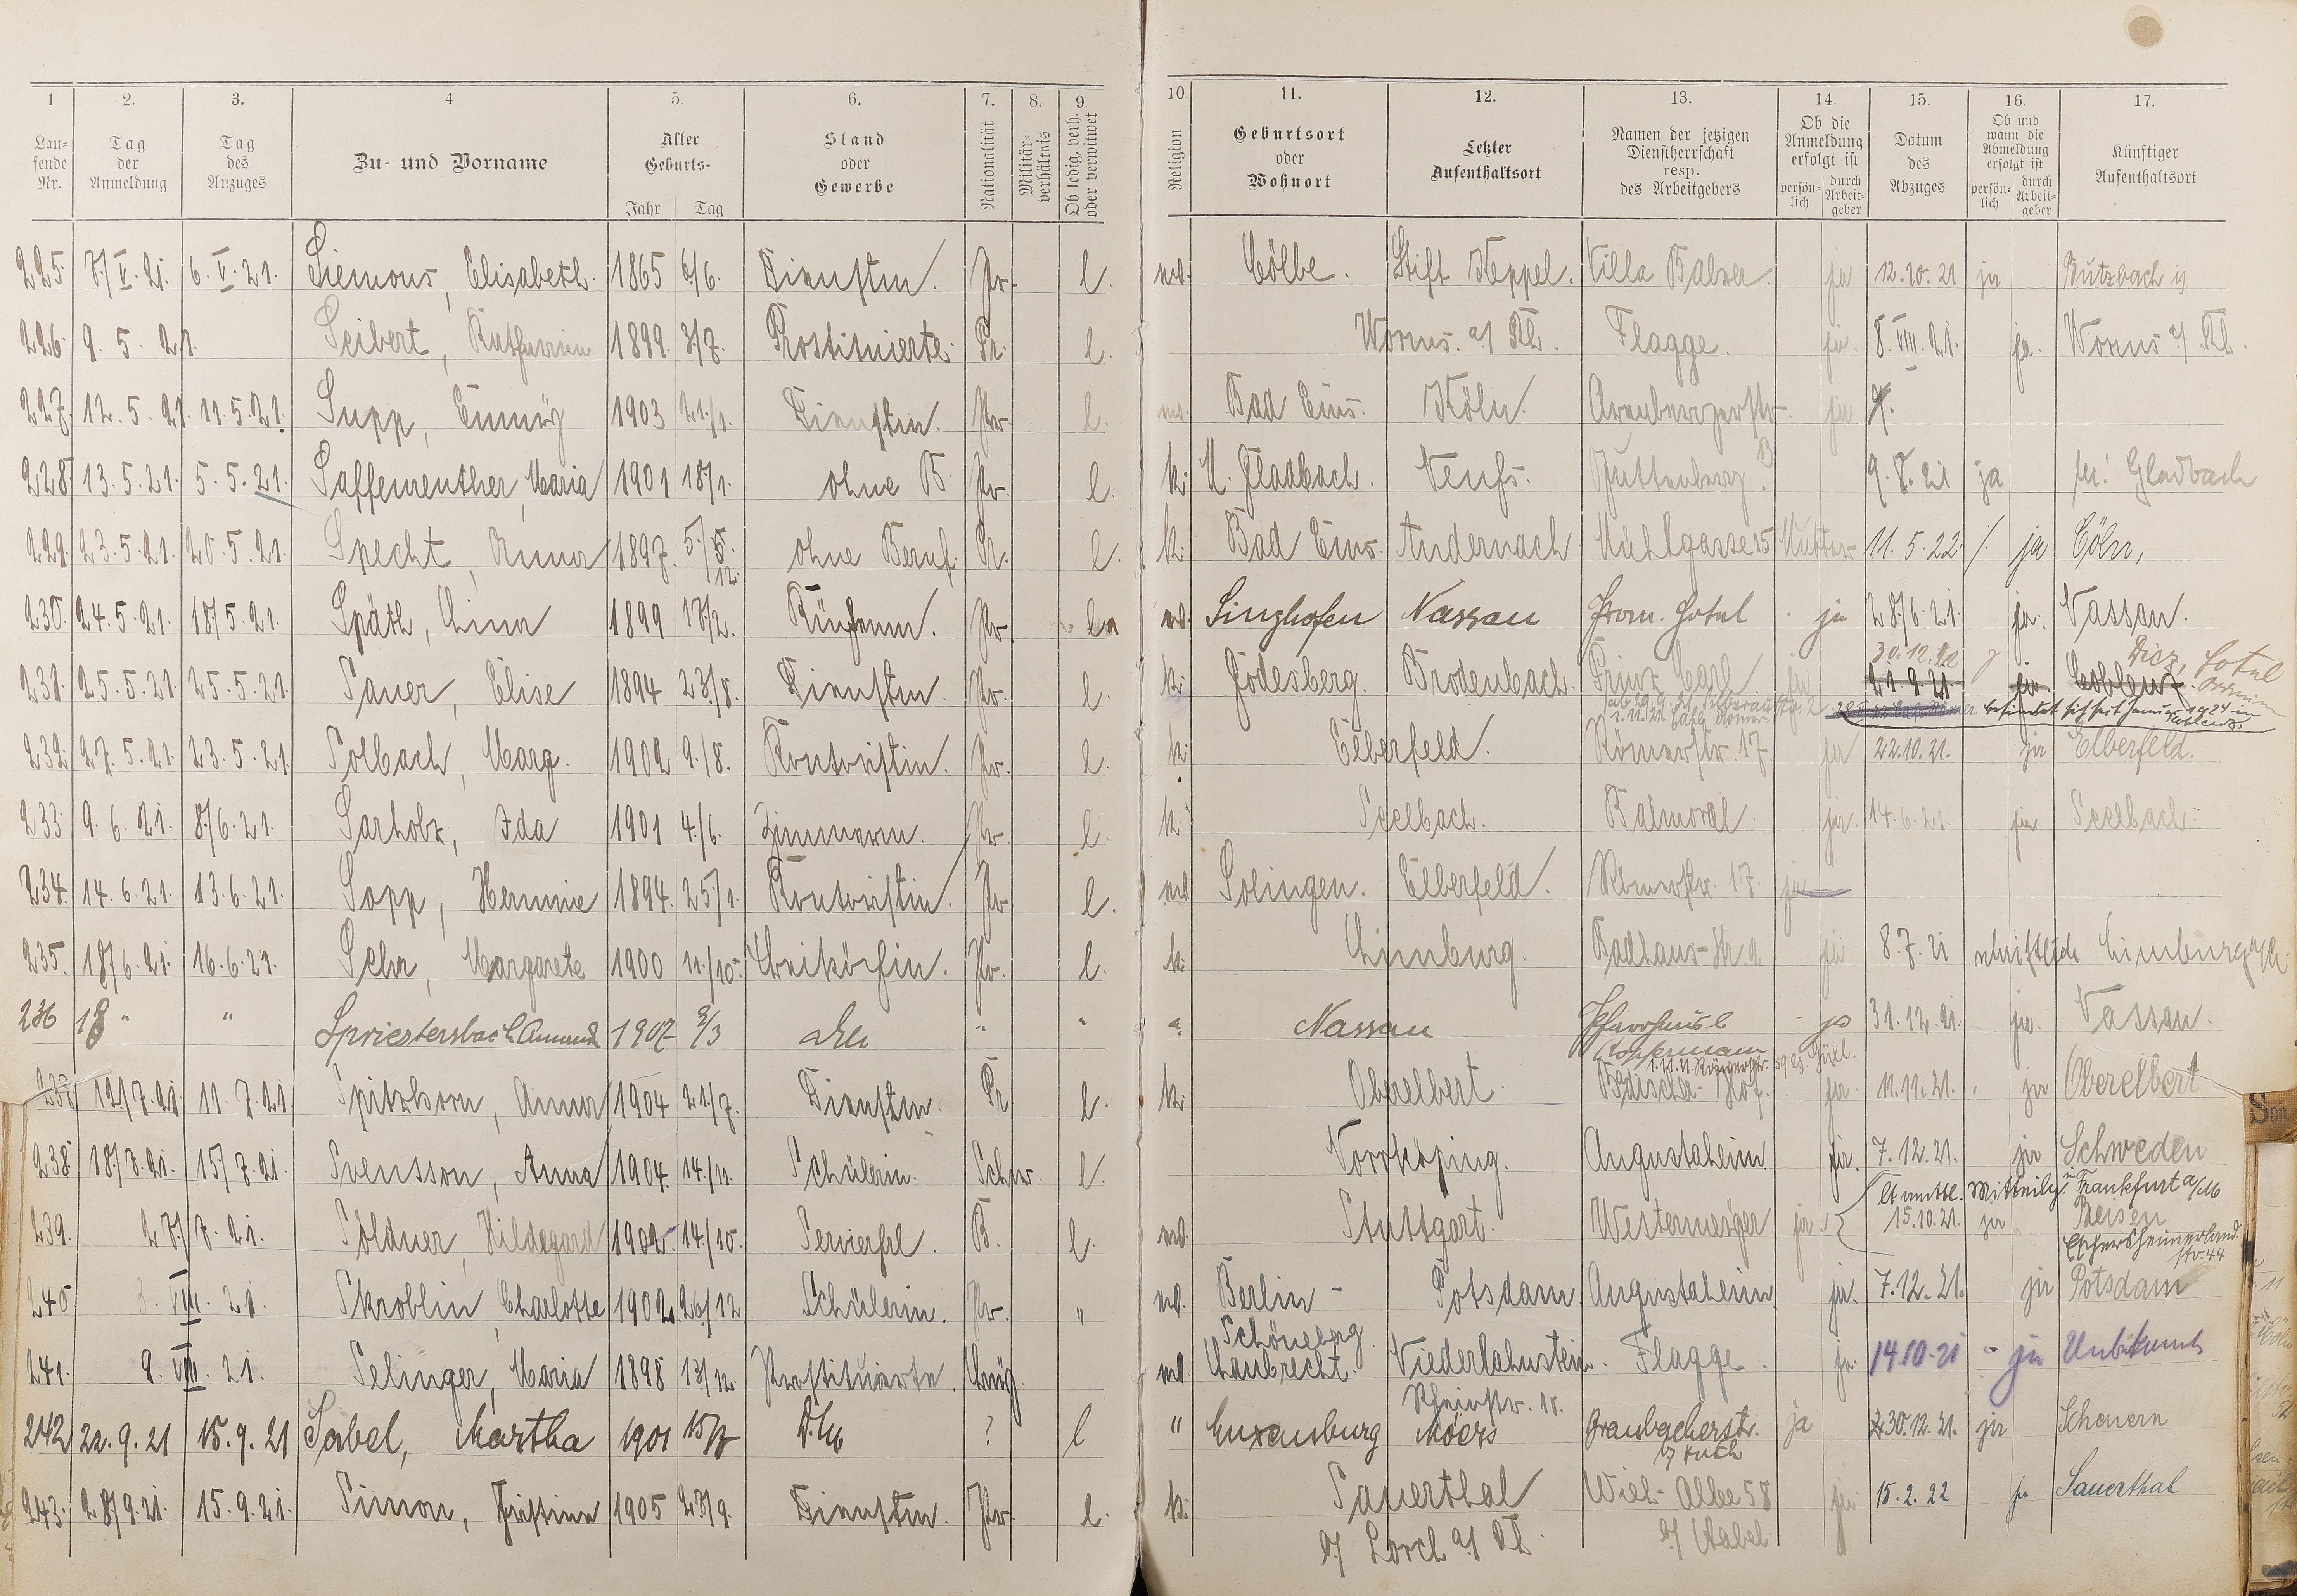 1 2. 3. 4 5. 6. 7. 8. 9. 10. 11. 12. 13. 14. 15. 16. 17.
Lau-
fende
Nr.
Tag
der
Anmeldung
Tag
des
Anzuges
Zu- und Vorname
Alter
Geburts-
Jahr Tag
Stand
oder
Gewerbe
Nationalität
Militär-
verhältnis
Ob ledig, verh.
oder verwitwet
Religion
Geburtsort
oder
Wohnort
Letzter
Aufenthaltsort
Namen der jetzigen
Dienstherrschaft
resp.
des Arbeitgebers
Ob die
Anmeldung
erfolgt ist
persön-
lich
durch
Arbeit-
geber
Datum
des
Abzuges
Ob und
wann die
Abmeldung
erfolgt ist
persön-
lich
durch
Arbeit-
geber
Künftiger
Aufenthaltsort
225. 7/V. 21. 6. V. 21. Siemons, Elisabeth. 1865 6/6. Dienstm. Pr. l. ev. Cölbe. Stift Keppel. Villa Balzer. ja 12.10.21 ja Butzbach
226. 9. 5. 21. Seibert, Katharina 1899. 3/7. Prostituierte Pr. l. Worms. a/ Rh. Flagge. ja. 8. VIII. 21. ja. Worms a/ Rh.
227. 12. 5. 21. 11. 5. 21. Supp, Emmy 1903 21/1. Dienstm. Pr. l. ev. Bad Ems. Köln. ja
228. 13. 5. 21. 5. 5. 21. Saffenreuther, Maria 1901 18/1. ohne B. Pr. l. k. M. Gladbach. Neuß. 9. 7. 21 ja M. Gladbach
229. 23. 5. 21. 20. 5. 21. Specht, Anna 1897. 5/12. ohne Beruf. Pr. l. k. Bad Ems. Andernach. Mühlgasse 15 Mutter 11. 5. 22. /. ja Cöln,
230. 24. 5. 21. 18/5. 21. Späth, Lina 1899 17/2. Pr. l. ev. Singhofen Nassau Brom. Hotel ja 28/6. 21. ja. Nassau.
30. 12. 22 Diez, Hotel
231. 25. 5. 21. 25. 5. 21. Sauer, Elise 1894 23/8. Dienstm. Pr. l. k. Godesberg. Brodenbach. Prinz Carl ja 21. 9. 21. ja. Coblenz.
befindet sich seit Januar 1924 in
Coblenz.
232. 27. 5. 21. 23. 5. 21. Solbach, Marg. 1902 9./8. Kontoristin. Pr. l. k. Elberfeld. Römerstr. 17. ja 22.10.21. ja Elberfeld.
233. 9. 6. 21. 8/6. 21. Sarholz, Ida 1901 4/6. Zimmerm. Pr. l. k. Seelbach. Balmoral. ja. 14. 6. 21. ja Seelbach.
234. 14. 6. 21. 13. 6. 21. Sopp, Hermine 1894. 25/1. Kontoristin. Pr. l. ev. Solingen. Elberfeld. Römerstr. 17. ja
235. 18/6. 21. 16. 6. 21. Sehr, Margarete 1900 11./10. Beiköchin. Pr. l. k. Limburg. Badhaus-Str. 2 ja 8. 7. 21 schriftlich Limburg a/L.
236 18 " " Spriestersbach Amanda 1907 9/3 " " Nassau Pfarrhaus ja 31. 12. 21. ja. Nassau.
Koppermann
237 12/7. 21. 11. 7. 21 Spitzhorn, Anna 1904 21./7. Dienstm. Pr. l. k. Oberelbert. Badischer Hof. ja. 11. 11. 21. ja Oberelbert
238. 18/7. 21. 15/7. 21. Svensson, Anna 1904. 14/11. Schülerin. Schw. l. Norrköping. Augustaheim. ja. 7. 12. 21. ja Schweden
lt. amtl. Mitteilg. in Frankfurt a/M
239. 27/7. 21. Söldner, Hildegard 1902. 14./10. Servierfrl. B. l. ev. Stuttgart. Westerweger ja 15.10.21. ja Reisen
Eschersheimerland-
str. 44
240. 3. VIII. 21. Skroblin, Charlotte 1902. 26/12 Schülerin. Pr. " ev. Berlin - Potsdam. Augustaheim. ja. 7. 12. 21. ja Potsdam
Schöneberg.
241. 9. VIII. 21. Selinger, Maria 1898 13/12. Prostituierte. ev. Laubrecht. Niederlahnstein. Flagge. ja. 14.10.21 " ja Unbekannt
Rheinstr. 10.
242 22. 9. 21 15. 9. 21 Sabel, Martha 1901 15/7 ? l " Luxemburg Moers Graubacherstr. ja 30. 12. 21. ja Scheuern
243. 28/9. 21. 15. 9. 21. Simon, Christine 1905 27/9. Dienstm. Pr. l. k. Sauerthal Wilh. Allee 58 ja 15. 2. 22 ja Sauerthal
b/ Lorch a/ Rh. b/ Nabel.
Sch